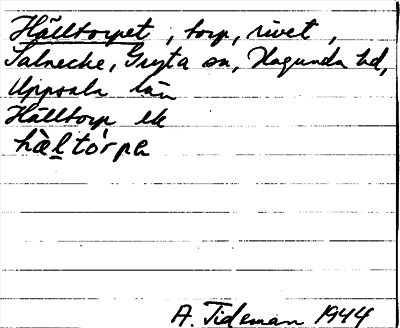 Hälltorpet, torp, rivet,
Salnecke, Gryta sn, Hagunda hd,
Uppsala län
Hälltorp ek
hàltórpe
A. Tideman 1944